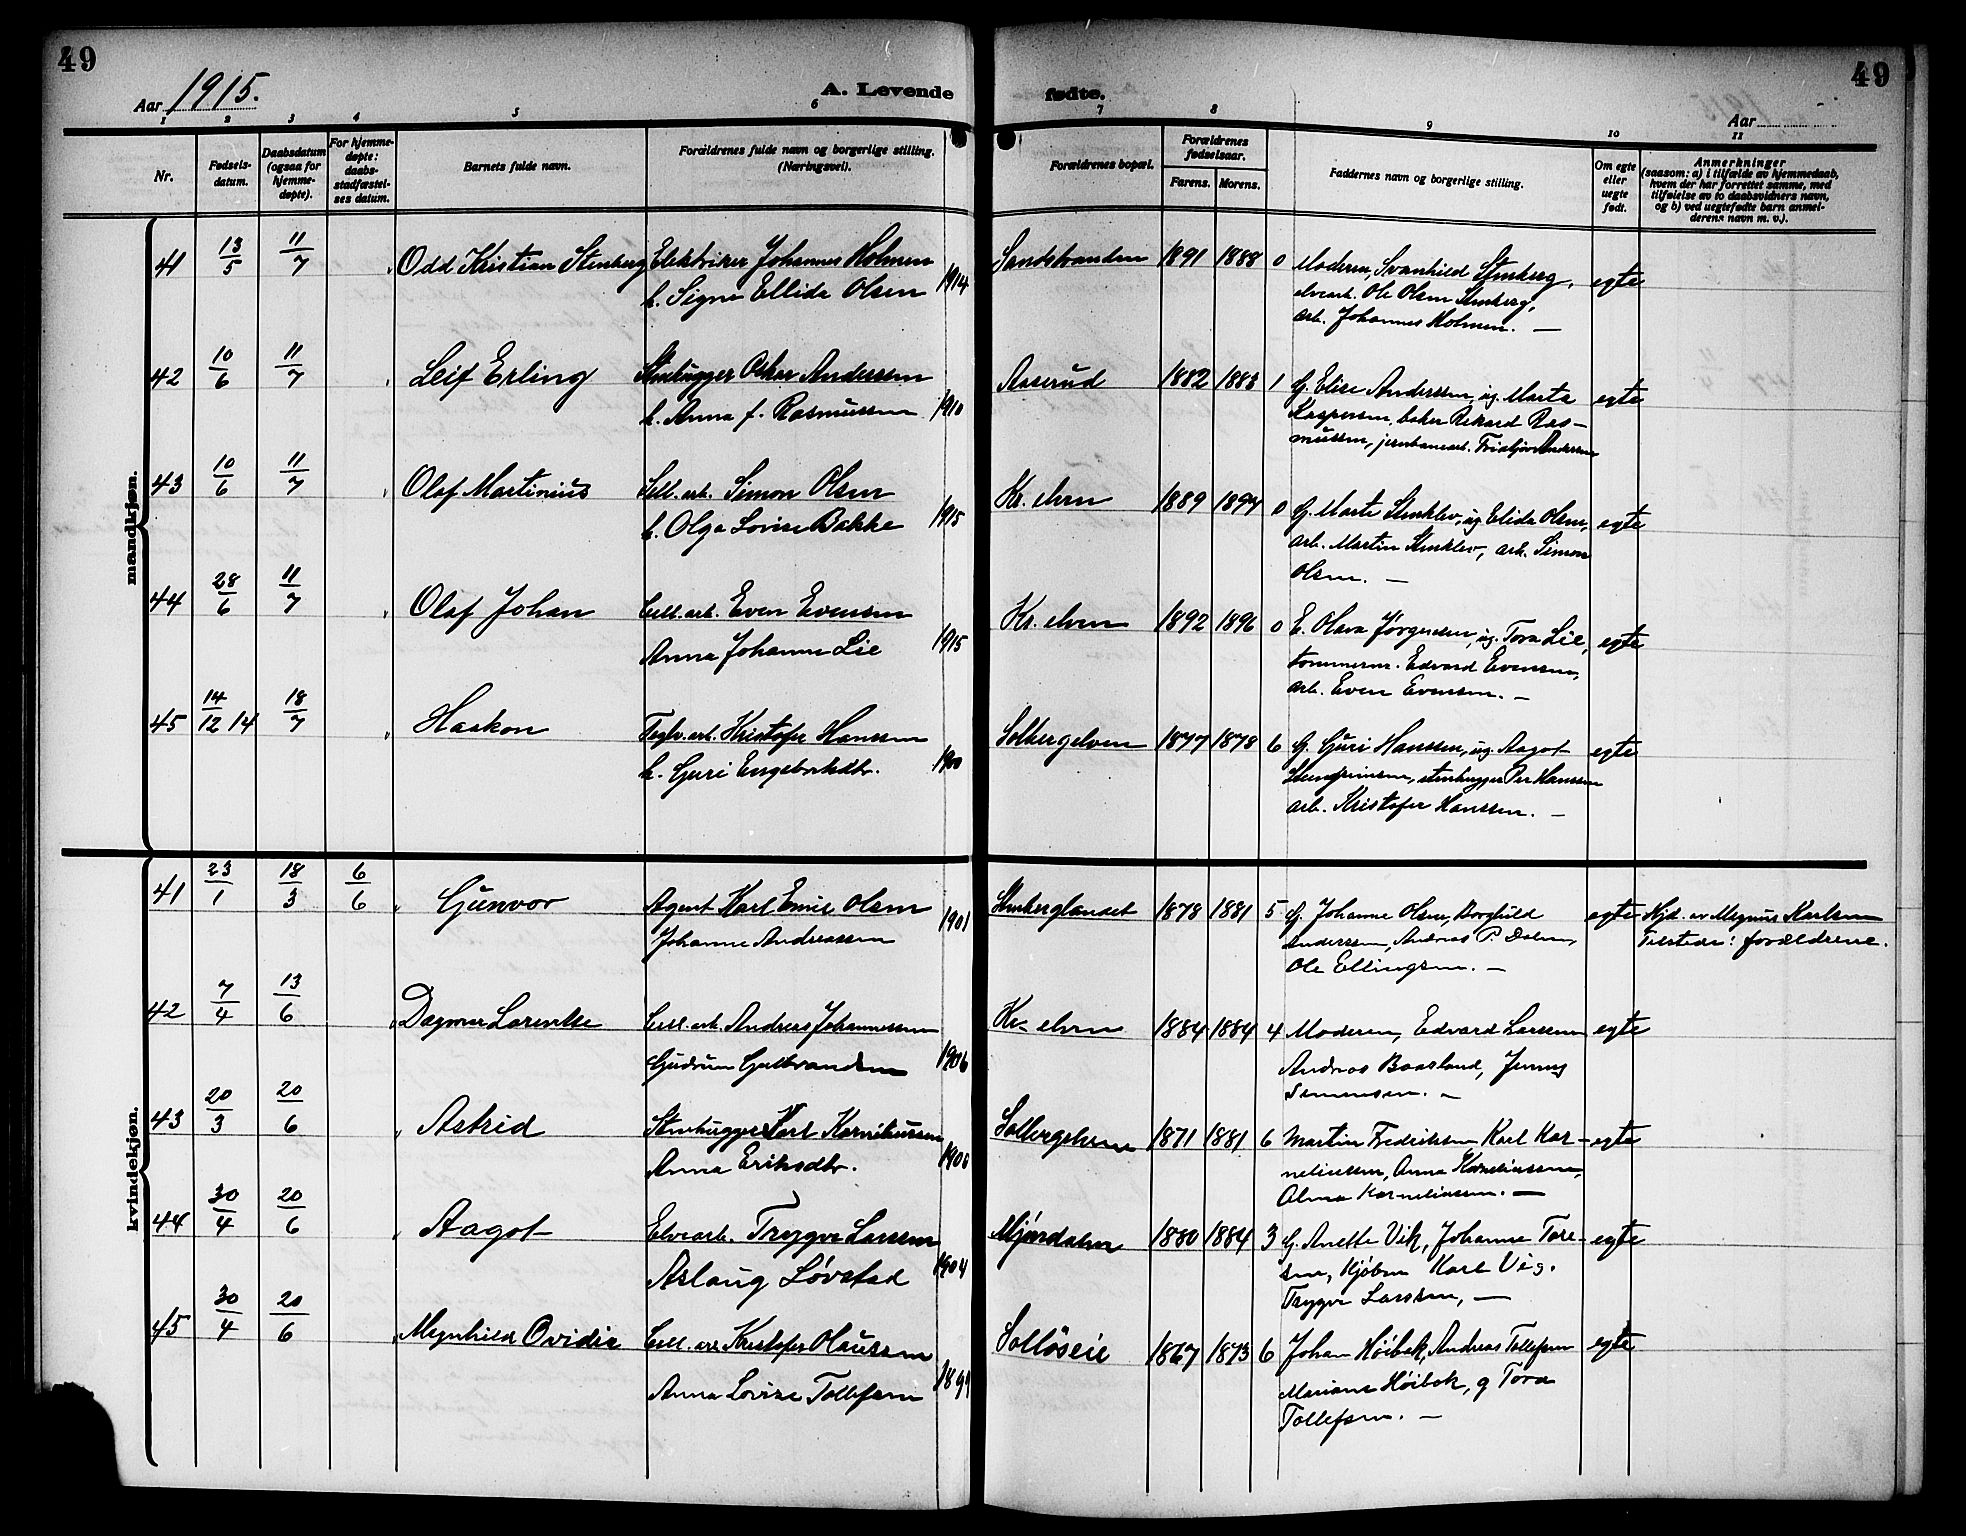 49
49
Aar 1915.
A. Levende
fødte.
Aar
1 2 3 4 5 6 7 8 9 10 11
Nr.
Fødsels-
datum.
Daabsdatum
(ogsaa for
hjemme-
døpte).
For hjemme-
døpte:
daabs-
stadfæstel-
ses datum.
Barnets fulde navn.
Forældrenes fulde navn og borgerlige stilling.
(Næringsvei).
Forældrenes bopæl.
Forældrenes
fødselsaar.
Farens. Morens.
Faddernes navn og borgerlige stilling.
Om egte
eller
uegte
født.
Anmerkninger
(saasom: a) i tilfælde av hjemmedaab,
hvem der har forrettet samme, med
tilføielse av to daabsvidners navn,
og b) ved uegtefødte barn anmel-
derens navn m. v.).
mandkjøn.
41 13/5 11/7 Odd Kristian Stenberg Elektriker Johannes Holmen Sandstranden 1891 1888 0 Moderen, Svanhild Stenberg, egte
h. Signe Ellida Olsen 1914 elvearb. Ole Olsen Stenberg,
arb. Johannes Holmen. —
42 10/6 11/7 Leif Erling Stenhugger Oskar Anderssen Aaserud 1882 1883 1 G. Elise Anderssen, ug. Marta egte
h. Anna f. Rasmussen 1910 Kaspersen, baker Rikard Ras-
mussen, jernbanearb. Fridtjov Anderssen
43 10/6 11/7 Olaf Martinius Cell. arb. Simon Olsen Kr. elven 1889 1894 0 G. Marte Stenklev, ug. Elida Olsen, egte
h. Olga Lovise Bakke 1915 arb. Martin Stenklev, arb. Simon
Olsen. —
44 28/6 11/7 Olaf Johan Cell. arb. Even Evensen Kr. elven 1892 1896 0 E. Olava Jørgensen, ug. Tora Lie, egte
Anna Johanne Lie 1915 tømmerm. Edvard Evensen,
arb. Even Evensen. —
45 14/12 14 18/7 Haakon Teglv. arb. Kristofer Hanssen Solbergelven 1877 1878 6 G. Guri Hanssen, ug. Aagot egte
h. Guri Engebretsdtr. 1900 stenhugger Per Hanssen
arb. Kristofer Hanssen. —
kvindekjøn.
41 23/1 18/3 6/6 Gunvor Agent Karl Emil Olsen Stenberglandet 1878 1881 5 G. Johanne Olsen, Borghild egte Hjd. av Magnus Karlsen
Johanne Andreassen 1901 Anderssen, Andreas P. Dalen, Tilstede: forældrene.
Ole Ellingsen. —
42 7/4 13/6 Dagmar Lorentse Cell. arb. Andreas Johannessen Kr. elven 1884 1884 4 Moderen, Edvard Larssen egte
Gudrun Gulbrandsen 1906 Andreas Baasland, Jenny
Simensen. —
43 20/3 20/6 Astrid Stenhugger Karl Korneliussen Solbergelven 1871 1881 6 Martin Fredriksen Karl Kor- egte
Anna Eriksdtr. 1900 neliussen, Anna Korneliussen,
Alma Korneliussen. —
44 30/4 20/6 Aagot Elvearb. Trygve Larssen Mjøndalen 1880 1884 3 G. Anette Vik, Johanne Tore- egte
Aslaug Løvstad 1904 sen, Kjøbm Karl Vig.
Trygve Larssen, —
45 30/4 20/6 Magnhild Ovidie Cell. arb. Kristofer Olaussen Solløseie 1867 1873 6 Johan Høibak, Andreas Tollefsen egte
Anna Lovise Tollefsen 1899 Mariane Høibak, g Tora
Tollefsen. —